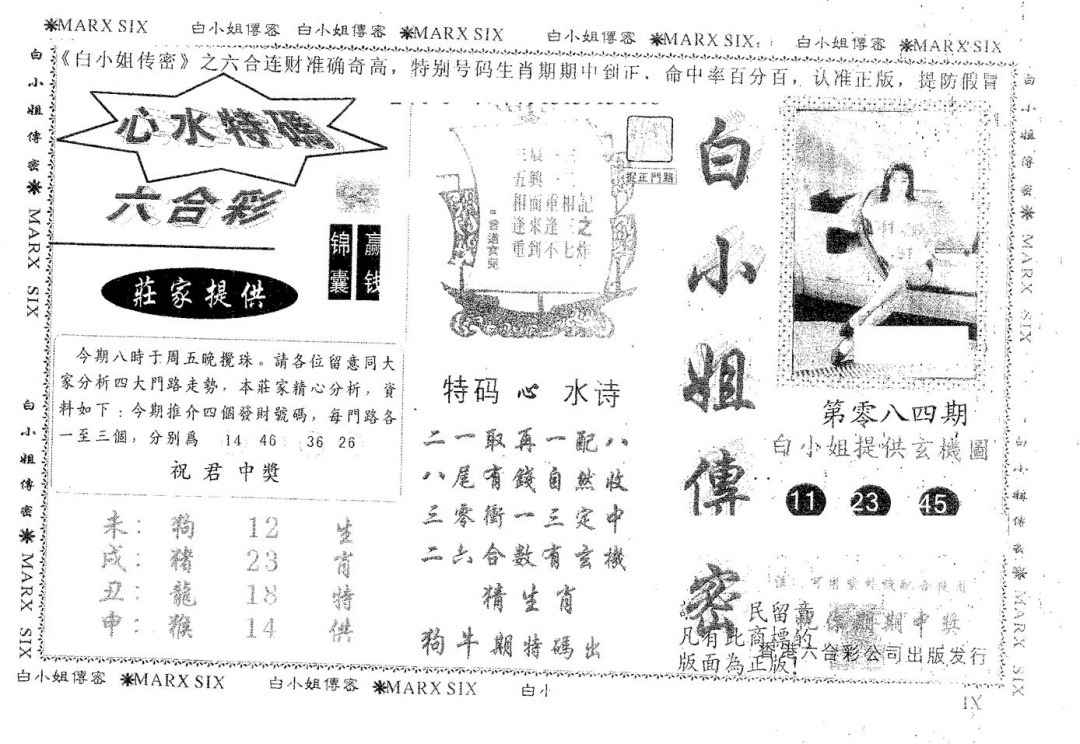 ✳MARX SIX 白小姐傳密 白小姐傳密 ✳MARX SIX 白小姐傳密 ✳MARX SIX 白小姐傳密 ✳MARX SIX
白小姐傳密 ✳ MARX SIX
白小姐傳密 ✳ MARX SIX
《白小姐传密》之六合连财准确奇高，特别号码生肖期期中到正．命中率百分百，认准正版，提防假冒
心水特碼
六合彩
赢钱
锦囊
莊家提供
今期八時于周五晚攪珠。請各位留意同大
家分析四大門路走勢，本莊家精心分析，資
料如下：今期推介四個發財號碼，每門路各
一至三個，分别爲 14 46 36 26
祝君中獎
未：狗 12 生
戌：猪 23 肖
丑：龍 18 特
申：猴 14 供
捉正門路
五興一二
相面重相記
逢來逢三之
重到不七炸
曾道女兒
特码心水诗
二一取再一配八
八尾有錢自然收
三零衝一三定中
二六合數有玄機
猜生肖
狗牛期特碼出
白小姐傳密
第零八四期
白小姐提供玄機圖
11 23 45
民留意
凡有此商標的
版面為正版!
期期中獎
香港六合彩公司出版发行
白小姐傳密 ✳ MARX SIX
白小姐傳密 ✳ MARX SIX
白小姐傳密 ✳MARX SIX 白小姐傳密 ✳MARX SIX 白小
IX